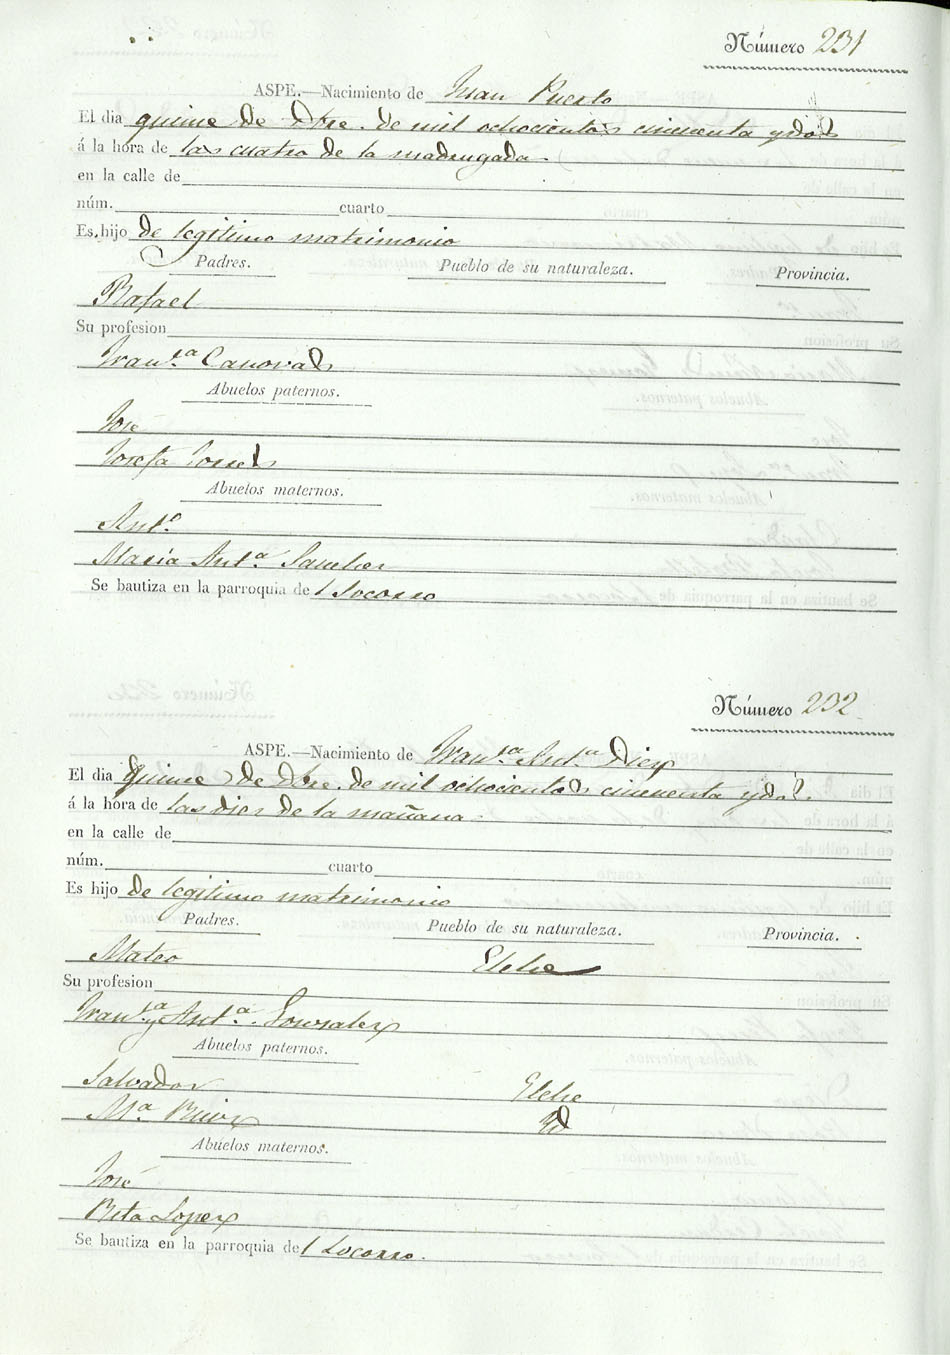 Número 231
ASPE.—Nacimiento de Juan Puerto
El dia quince de Dbre. de mil ochocientos cincuenta y dos
á la hora de las cuatro de la madrugada.
en la calle de
núm. cuarto
Es hijo de legitimo matrimonio
Padres. Pueblo de su naturaleza. Provincia.
Rafael
Su profesion
Fran.ca Canovas
Abuelos paternos.
José
Josefa Torres
Abuelos maternos.
Ant.o
Maria Ant.a Sanchez
Se bautiza en la parroquia de l Socorro
Número 232
ASPE.—Nacimiento de Fran.ca Ant.a Diez
El dia quince de Dbre. de mil ochocientos cincuenta y dos.
á la hora de las dies de la mañana.
en la calle de
núm. cuarto
Es hijo de legitimo matrimonio
Padres. Pueblo de su naturaleza. Provincia.
Mateo Elche
Su profesion
Fran.ca y Ant.a Gonzalez
Abuelos paternos.
Salvador Elche
M.a Id
Abuelos maternos.
José
Rita Lopez
Se bautiza en la parroquia de l Socorro.